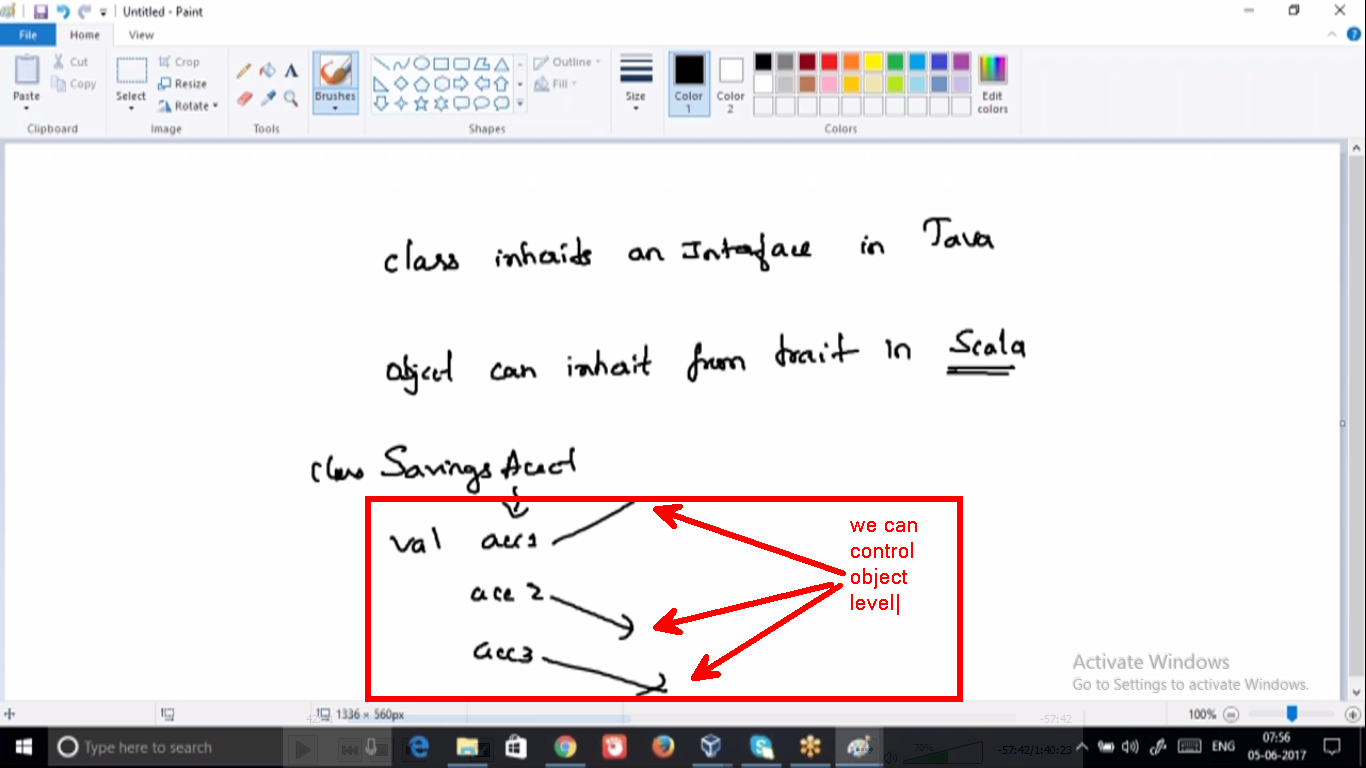 Untitled - Paint
File Home View
Paste Cut Copy Select Crop Resize Rotate Brushes Outline Fill Size Color 1 Color 2 Edit colors
Clipboard Image Tools Shapes Colors
class inherits an Interface in Java
object can inherit from trait in Scala
class Savings Acct
val acc1
acc 2
acc3
we can
control
object
level
Activate Windows
Go to Settings to activate Windows.
1336 × 560px 100%
-57:42
Type here to search
70%
-57:42/1:40:23
ENG
07:56
05-06-2017